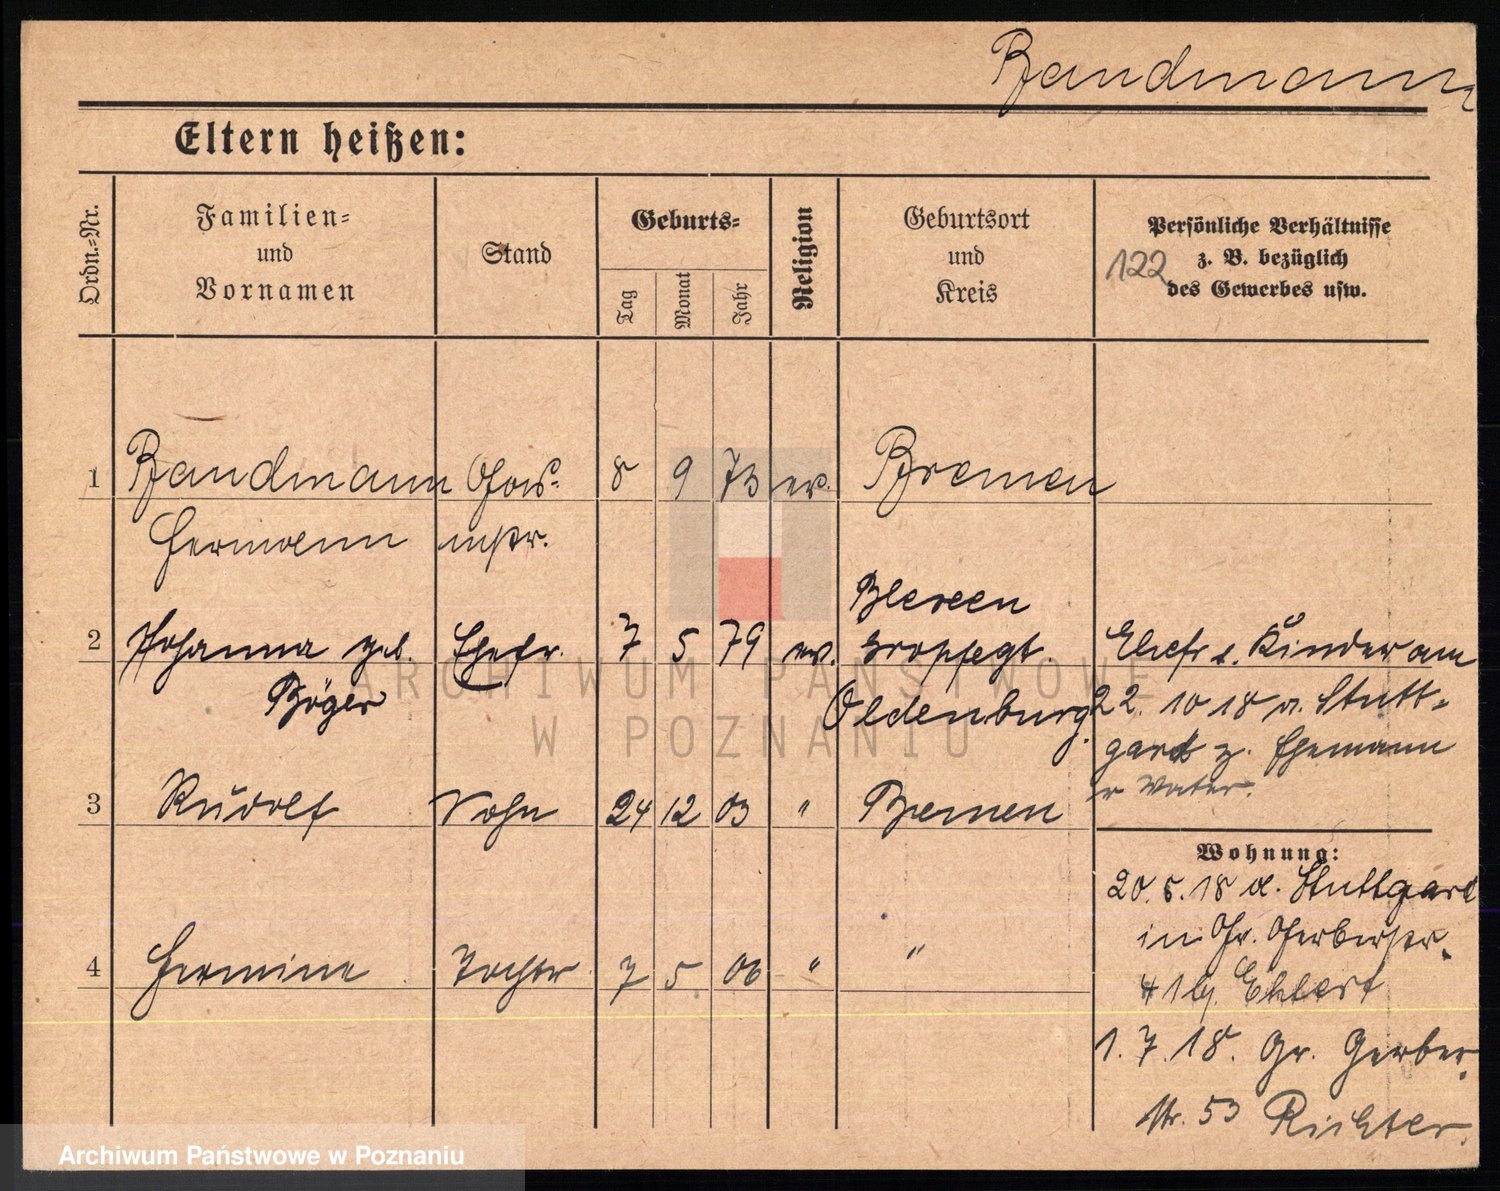 Bandmann
Eltern heißen:
Ordn.-Nr.
Familien-
und
Vornamen
Stand
Geburts-
Tag
Monat
Jahr
Religion
Geburtsort
und
Kreis
Persönliche Verhältnisse
z. B. bezüglich
des Gewerbes usw.
122
1 Bandmann 8 9 73 ev. Bremen
Hermann
2 Johanna geb. Ehefr. 7 5 79 ev.
Böger
Oldenburg.
Ehefr u. Kinder am
22. 10 18 n. Stutt-
gart z. Ehemann
Vater.
3 Rudolf Sohn 24 12 03 " Bremen
Wohnung:
20. 5. 18 a. Stuttgart
in Gr. Gerberstr.
41 bj. Ehlert
4 Hermine Tochter 7 5 06 " "
1. 7. 18. Gr. Gerber
str. 53 Richter.
ARCHIWUM PAŃSTWOWE
W POZNANIU
Archiwum Państwowe w Poznaniu